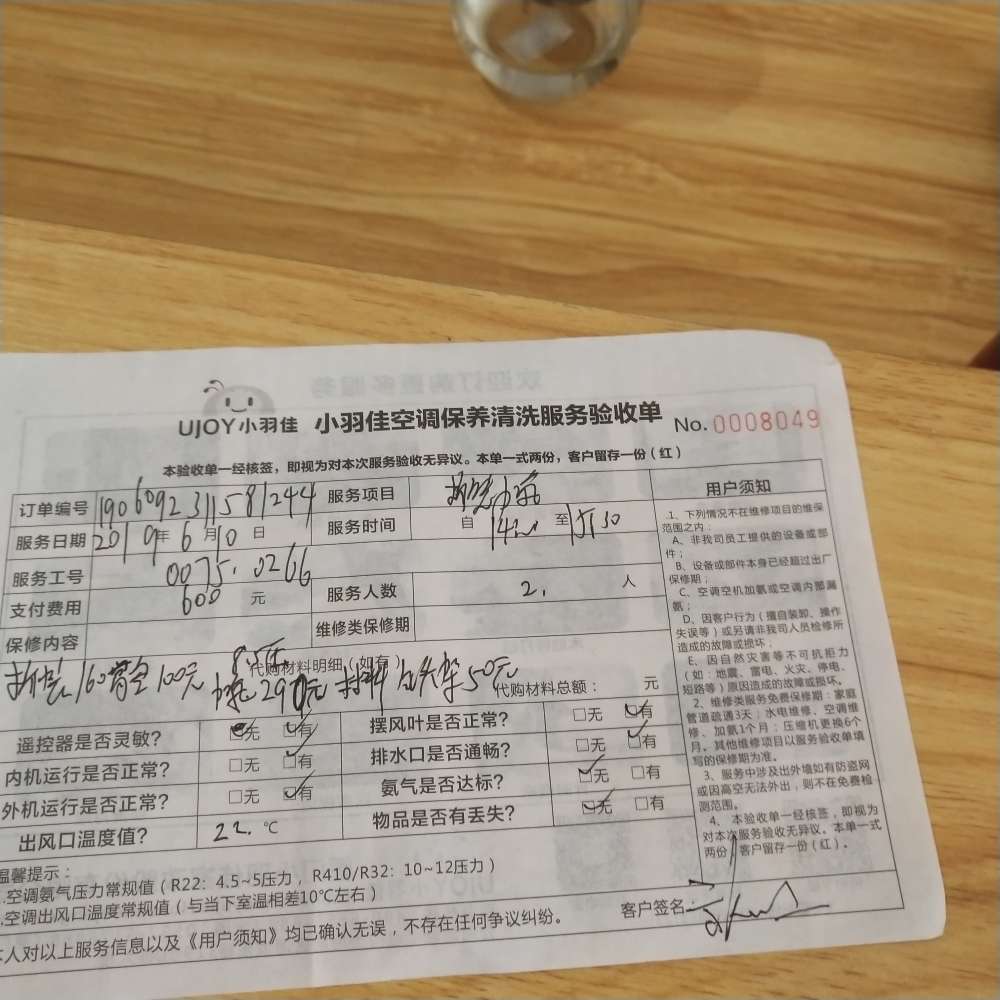 UJOY小羽佳 小羽佳空调保养清洗服务验收单 No.0008049
本验收单一经核签，即视为对本次服务验收无异议。本单一式两份，客户留存一份（红）
订单编号 1906092311581244 服务项目
服务日期 2019年6月10日 服务时间 自 至
服务工号 0075.0266
支付费用 600 元 服务人数 2. 人
保修内容 维修类保修期
代购材料明细（如有） 160 100元 290元 材料 50元 代购材料总额： 元
遥控器是否灵敏？ □无 □有 摆风叶是否正常？ □无 □有
内机运行是否正常？ □无 □有 排水口是否通畅？ □无 □有
外机运行是否正常？ □无 □有 氨气是否达标？ □无 □有
出风口温度值？ 22.℃ 物品是否有丢失？ □无 □有
温馨提示：
.空调氨气压力常规值（R22：4.5~5压力，R410/R32：10~12压力）
.空调出风口温度常规值（与当下室温相差10℃左右）
本人对以上服务信息以及《用户须知》均已确认无误，不存在任何争议纠纷。
客户签名：
用户须知
1、下列情况不在维修项目的维保
范围之内：
A、非我司员工提供的设备或部
件；
B、设备或部件本身已经超过出厂
保修期；
C、空调空机加氨或空调内部漏
氨；
D、因客户行为（擅自装卸、操作
失误等）或另请非我司人员检修所
造成的故障或损坏；
E、因自然灾害等不可抗拒力
（如：地震、雷电、火灾、停电、
短路等）原因造成的故障或损坏。
2、维修类服务免费保修期：家庭
管道疏通3天；水电维修、空调维
修、加氨1个月；压缩机更换6个
月。其他维修项目以服务验收单填
写的保修期为准。
3、服务中涉及出外墙如有防盗网
或因高空无法外出，则不在免费检
测范围。
4、本验收单一经核签，即视为
对本次服务验收无异议。本单一式
两份，客户留存一份（红）。